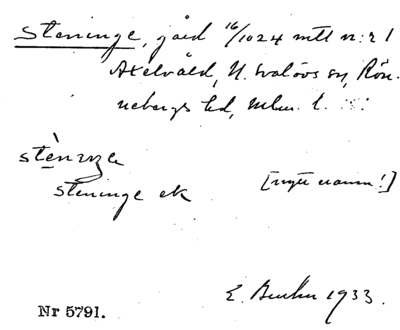 Steninge, gård 16/1024 mtl nr 2 1
Axelvåld, N. Svalövs sn, Rön-
nebergs hd, Mlm. l.
stèninge
steninge ek [nytt namn!]
E. 1933.
Nr 5791.